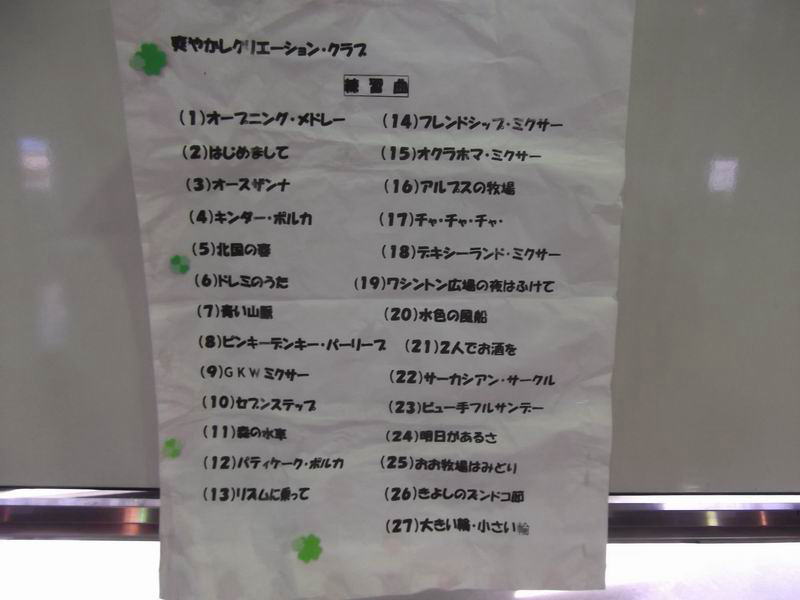 爽やかレクリエーション・クラブ
練習曲
(1)オープニング・メドレー
(2)はじめまして
(3)オースザンナ
(4)キンダー・ポルカ
(5)北国の春
(6)ドレミのうた
(7)青い山脈
(8)ピンキーデンキー・パーリーブ
(9)GKWミクサー
(10)セブンステップ
(11)森の水車
(12)パティケーク・ポルカ
(13)リズムに乗って
(14)フレンドシップ・ミクサー
(15)オクラホマ・ミクサー
(16)アルプスの牧場
(17)チャ・チャ・チャ・
(18)デキシーランド・ミクサー
(19)ワシントン広場の夜はふけて
(20)水色の風船
(21)2人でお酒を
(22)サーカシアン・サークル
(23)ビューチフルサンデー
(24)明日があるさ
(25)おお牧場はみどり
(26)きよしのズンドコ節
(27)大きい輪・小さい輪